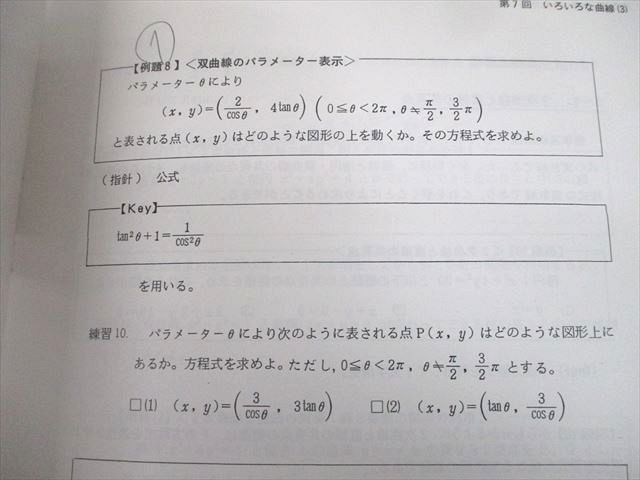 第7回 いろいろな曲線(3)
7
【例題8】<双曲線のパラメーター表示>
パラメーターθにより
(x, y)=(2/cosθ, 4tanθ) (0≦θ<2π, θ≒π/2, 3/2π)
と表される点(x, y)はどのような図形の上を動くか。その方程式を求めよ。
(指針) 公式
【Key】
tan²θ+1=1/cos²θ
を用いる。
練習10. パラメーターθにより次のように表される点P(x, y)はどのような図形上に
あるか。方程式を求めよ。ただし, 0≦θ<2π, θ≒π/2, 3/2πとする。
□(1) (x, y)=(3/cosθ, 3tanθ) □(2) (x, y)=(tanθ, 3/cosθ)